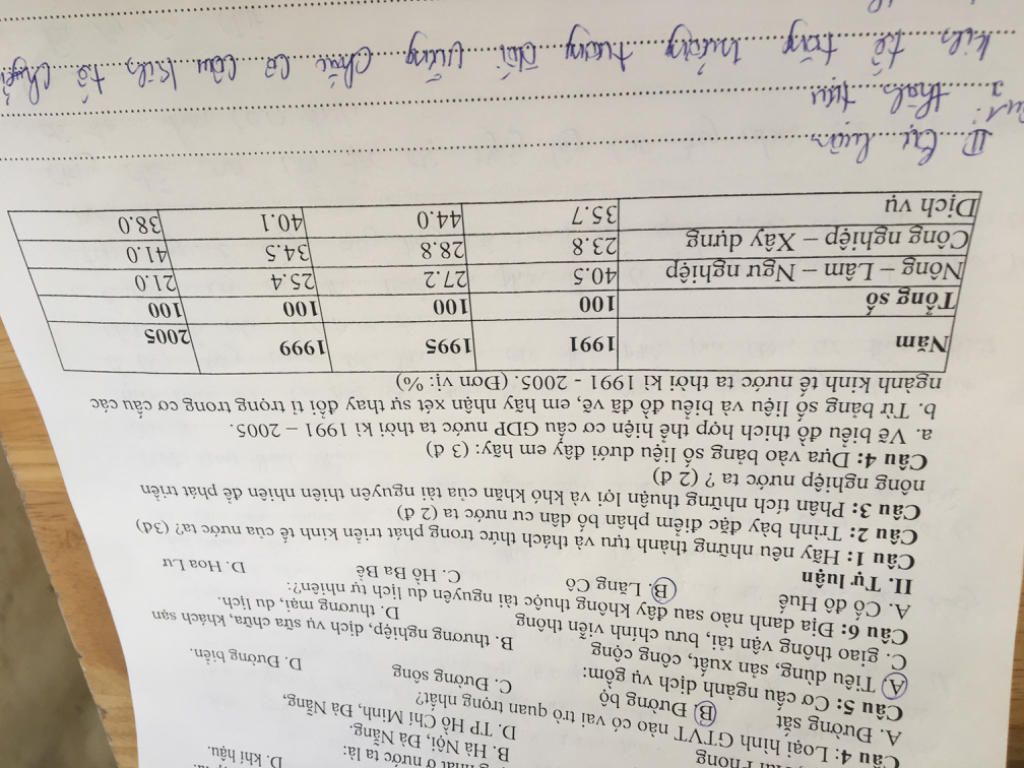 D. khí hậu.
ở nước ta là:
B. Hà Nội, Đà Nẵng.
D. TP Hồ Chí Minh, Đà Nẵng,
Câu 4: Loại hình GTVT nào có vai trò quan trọng nhất?
A. Đường sắt B. Đường bộ C. Đường sông D. Đường biển.
Câu 5: Cơ cấu ngành dịch vụ gồm:
A. Tiêu dùng, sản xuất, công cộng B. thương nghiệp, dịch vụ sữa chữa, khách sạn
C. giao thông vận tải, bưu chính viễn thông D. thương mại, du lịch.
Câu 6: Địa danh nào sau đây không thuộc tài nguyên du lịch tự nhiên?:
A. Cố đô Huế B. Lăng Cô C. Hồ Ba Bể D. Hoa Lư
II. Tự luận
Câu 1: Hãy nêu những thành tựu và thách thức trong phát triển kinh tế của nước ta? (3đ)
Câu 2: Trình bày đặc điểm phân bố dân cư nước ta (2 đ)
Câu 3: Phân tích những thuận lợi và khó khăn của tài nguyên thiên nhiên để phát triển
nông nghiệp nước ta ? (2 đ)
Câu 4: Dựa vào bảng số liệu dưới đây em hãy: (3 đ)
a. Vẽ biểu đồ thích hợp thể hiện cơ cấu GDP nước ta thời kì 1991 – 2005.
b. Từ bảng số liệu và biểu đồ đã vẽ, em hãy nhận xét sự thay đổi tỉ trọng trong cơ cấu các
ngành kinh tế nước ta thời kì 1991 - 2005. (Đơn vị: %)
Năm 1991 1995 1999 2005
Tổng số 100 100 100 100
Nông – Lâm – Ngư nghiệp 40.5 27.2 25.4 21.0
Công nghiệp – Xây dựng 23.8 28.8 34.5 41.0
Dịch vụ 35.7 44.0 40.1 38.0
II Tự luận
thành tựu
kinh tế tăng trưởng tương đối vững chắc cơ cấu kinh tế chuyển